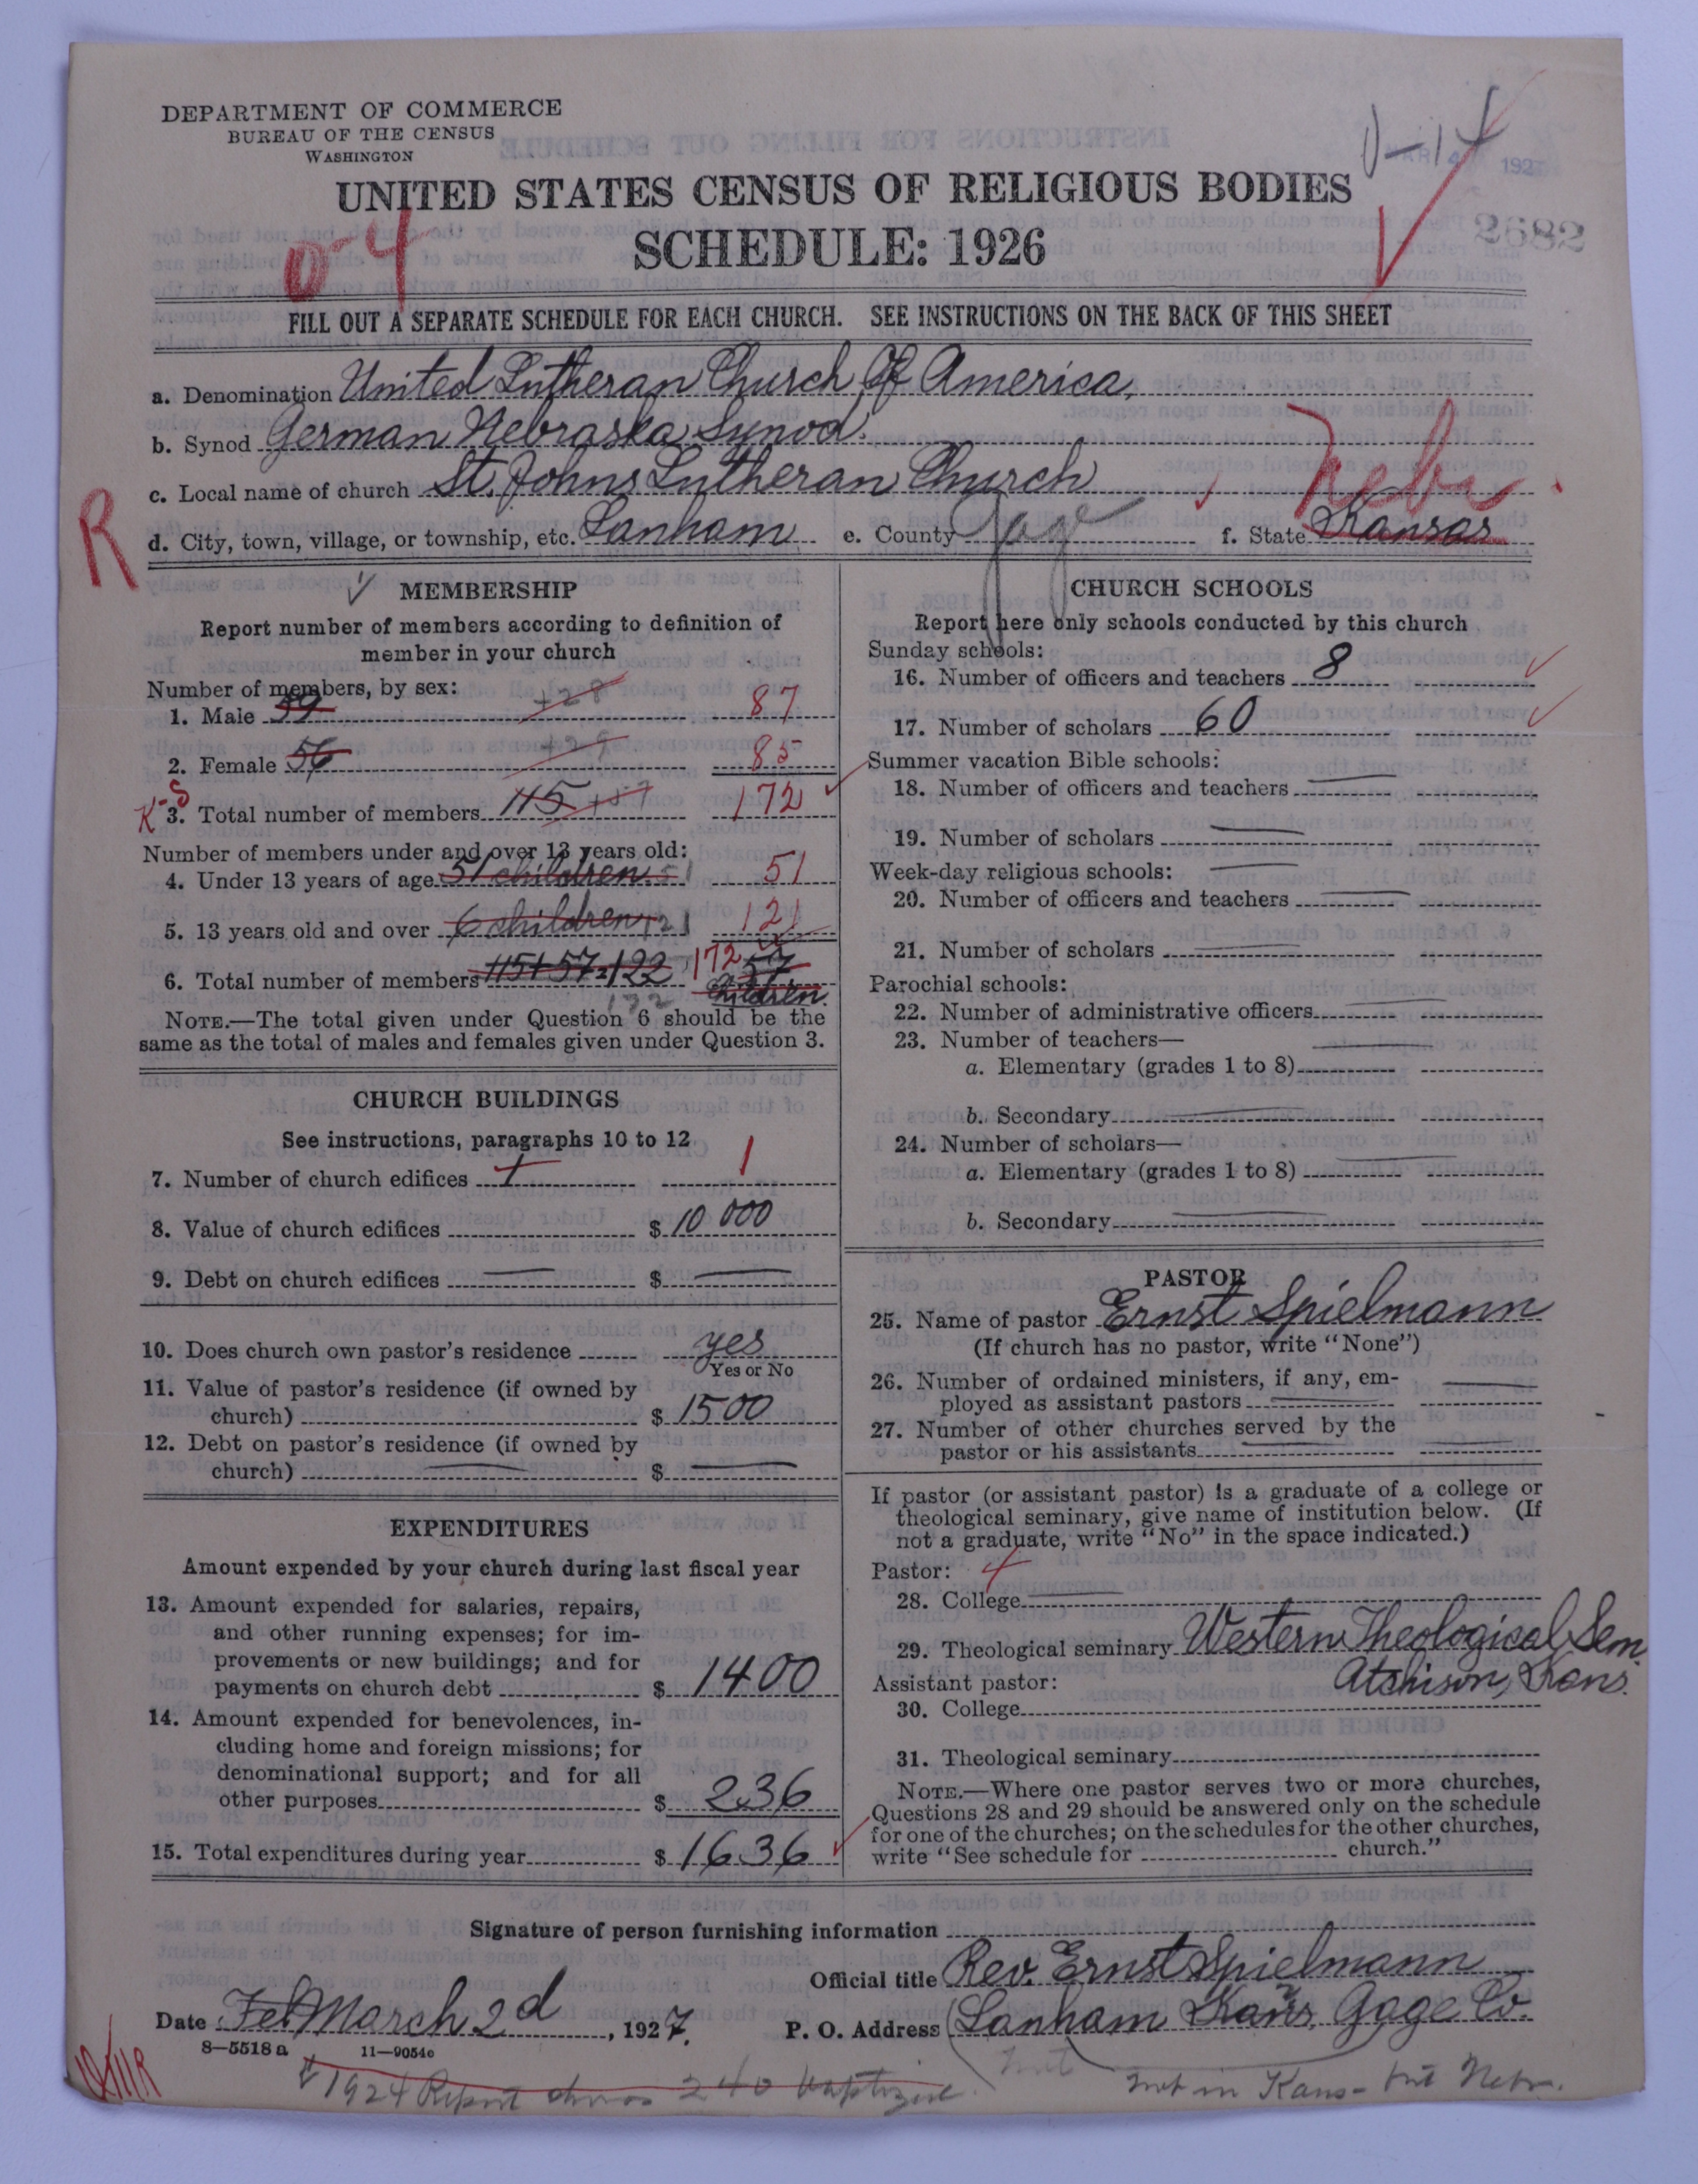 DEPARTMENT OF COMMERCE
BUREAU OF THE CENSUS
WASHINGTON
UNITED STATES CENSUS OF RELIGIOUS BODIES
SCHEDULE: 1926
2682
0-4
FILL OUT A SEPARATE SCHEDULE FOR EACH CHURCH. SEE INSTRUCTIONS ON THE BACK OF THIS SHEET
a. Denomination United Lutheran Church Of America.
b. Synod German Nebraska Synod.
c. Local name of church St. Johns Lutheran Church Nebr.
R
d. City, town, village, or township, etc. Lanham e. County Gage f. State Kansas
MEMBERSHIP
Report number of members according to definition of
member in your church
Number of members, by sex:
1. Male 59 +28 87
2. Female 56 +29 85
K-S
3. Total number of members 115 +57 172
Number of members under and over 13 years old:
4. Under 13 years of age 51 children 51 51
5. 13 years old and over 6 children 121 121
6. Total number of members 115+57=122 172 57
children.
NOTE.—The total given under Question 6 should be the
same as the total of males and females given under Question 3.
CHURCH BUILDINGS
See instructions, paragraphs 10 to 12
7. Number of church edifices 1 1
8. Value of church edifices $ 10 000
9. Debt on church edifices — $ —
10. Does church own pastor's residence yes
Yes or No
11. Value of pastor's residence (if owned by
church) $ 1500
12. Debt on pastor's residence (if owned by
church) — $ —
EXPENDITURES
Amount expended by your church during last fiscal year
13. Amount expended for salaries, repairs,
and other running expenses; for im-
provements or new buildings; and for
payments on church debt $ 1400
14. Amount expended for benevolences, in-
cluding home and foreign missions; for
denominational support; and for all
other purposes $ 236
15. Total expenditures during year $ 1636
CHURCH SCHOOLS
Report here only schools conducted by this church
Sunday schools:
16. Number of officers and teachers 8
17. Number of scholars 60
Summer vacation Bible schools:
18. Number of officers and teachers —
19. Number of scholars —
Week-day religious schools: —
20. Number of officers and teachers —
21. Number of scholars —
Parochial schools:
22. Number of administrative officers —
23. Number of teachers—
a. Elementary (grades 1 to 8) —
b. Secondary —
24. Number of scholars—
a. Elementary (grades 1 to 8) —
b. Secondary —
PASTOR
25. Name of pastor Ernst Spielmann
(If church has no pastor, write "None")
26. Number of ordained ministers, if any, em-
ployed as assistant pastors —
27. Number of other churches served by the
pastor or his assistants —
If pastor (or assistant pastor) is a graduate of a college or
theological seminary, give name of institution below. (If
not a graduate, write "No" in the space indicated.)
Pastor: 4
28. College —
29. Theological seminary Western Theological Sem.
Atchison, Kans.
Assistant pastor:
30. College
31. Theological seminary
NOTE.—Where one pastor serves two or more churches,
Questions 28 and 29 should be answered only on the schedule
for one of the churches; on the schedules for the other churches,
write "See schedule for church."
Signature of person furnishing information
Official title Rev. Ernst Spielmann
Date Feb March 2d, 1927. P. O. Address Lanham Kans, Gage Co.
8—5518 a 11—9054c
1924 Report shows 240 baptized. not in Kans - but Nebr.